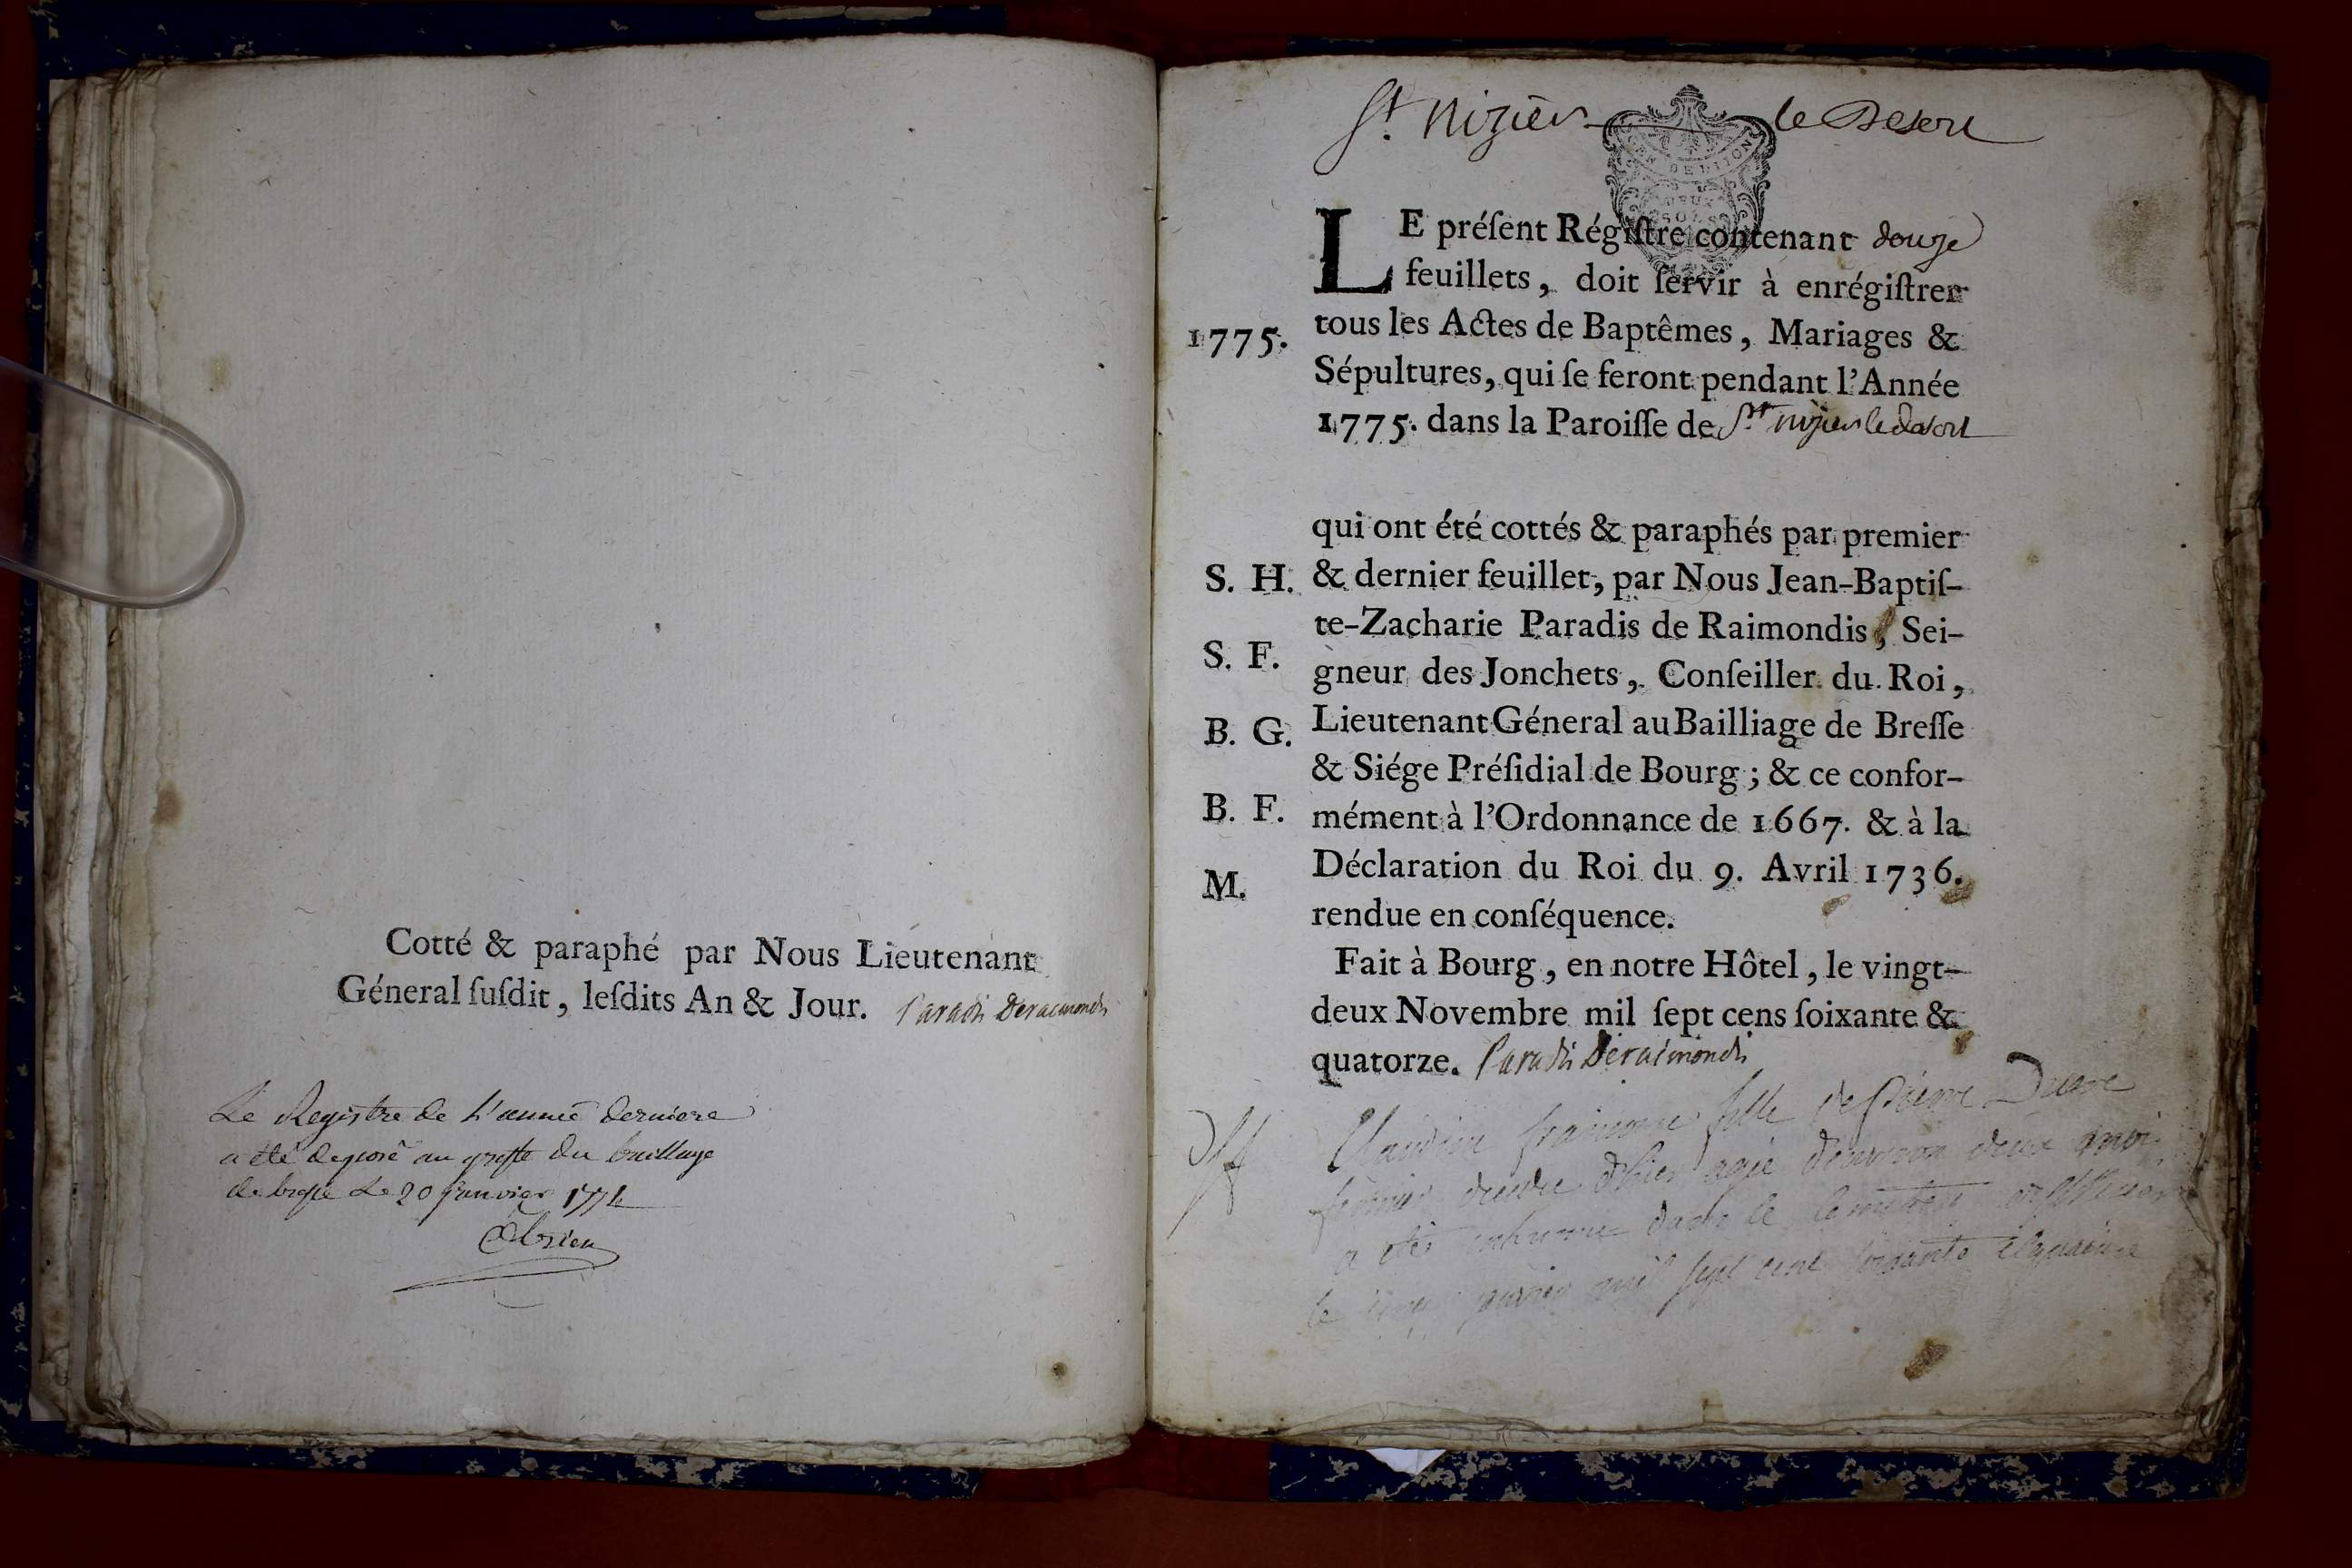 Cotté & paraphé par Nous Lieutenant
Géneral ſuſdit, leſdits An & Jour. Paradis Deraimondis
Le Registre de L'année derniere
a été deposé au greffe du bailliage
de bresse Le 20 janvier 177
St. Nizier le Desert
GEN DE DIJON
DEUX
SOLS
LE préſent Régiſtre contenant douze
feuillets, doit ſervir à enrégiſtrer
1775. tous les Actes de Baptêmes, Mariages &
Sépultures, qui ſe feront pendant l'Année
1775. dans la Paroiſſe de St nizier le desert
qui ont été cottés & paraphés par premier
S. H. & dernier feuillet, par Nous Jean-Baptiſ-
te-Zacharie Paradis de Raimondis, Sei-
S. F. gneur des Jonchets, Conſeiller du Roi,
B. G. Lieutenant Géneral au Bailliage de Breſſe
& Siége Préſidial de Bourg; & ce confor-
B. F. mément à l'Ordonnance de 1667. & à la
M. Déclaration du Roi du 9. Avril 1736.
rendue en conſéquence.
Fait à Bourg, en notre Hôtel, le vingt-
deux Novembre mil ſept cens ſoixante &
quatorze. Paradis Deraimondis
fille de Pierre
agée d'environ deux mois
a eté inhumée dans le
le janvier mil sept cent soixante